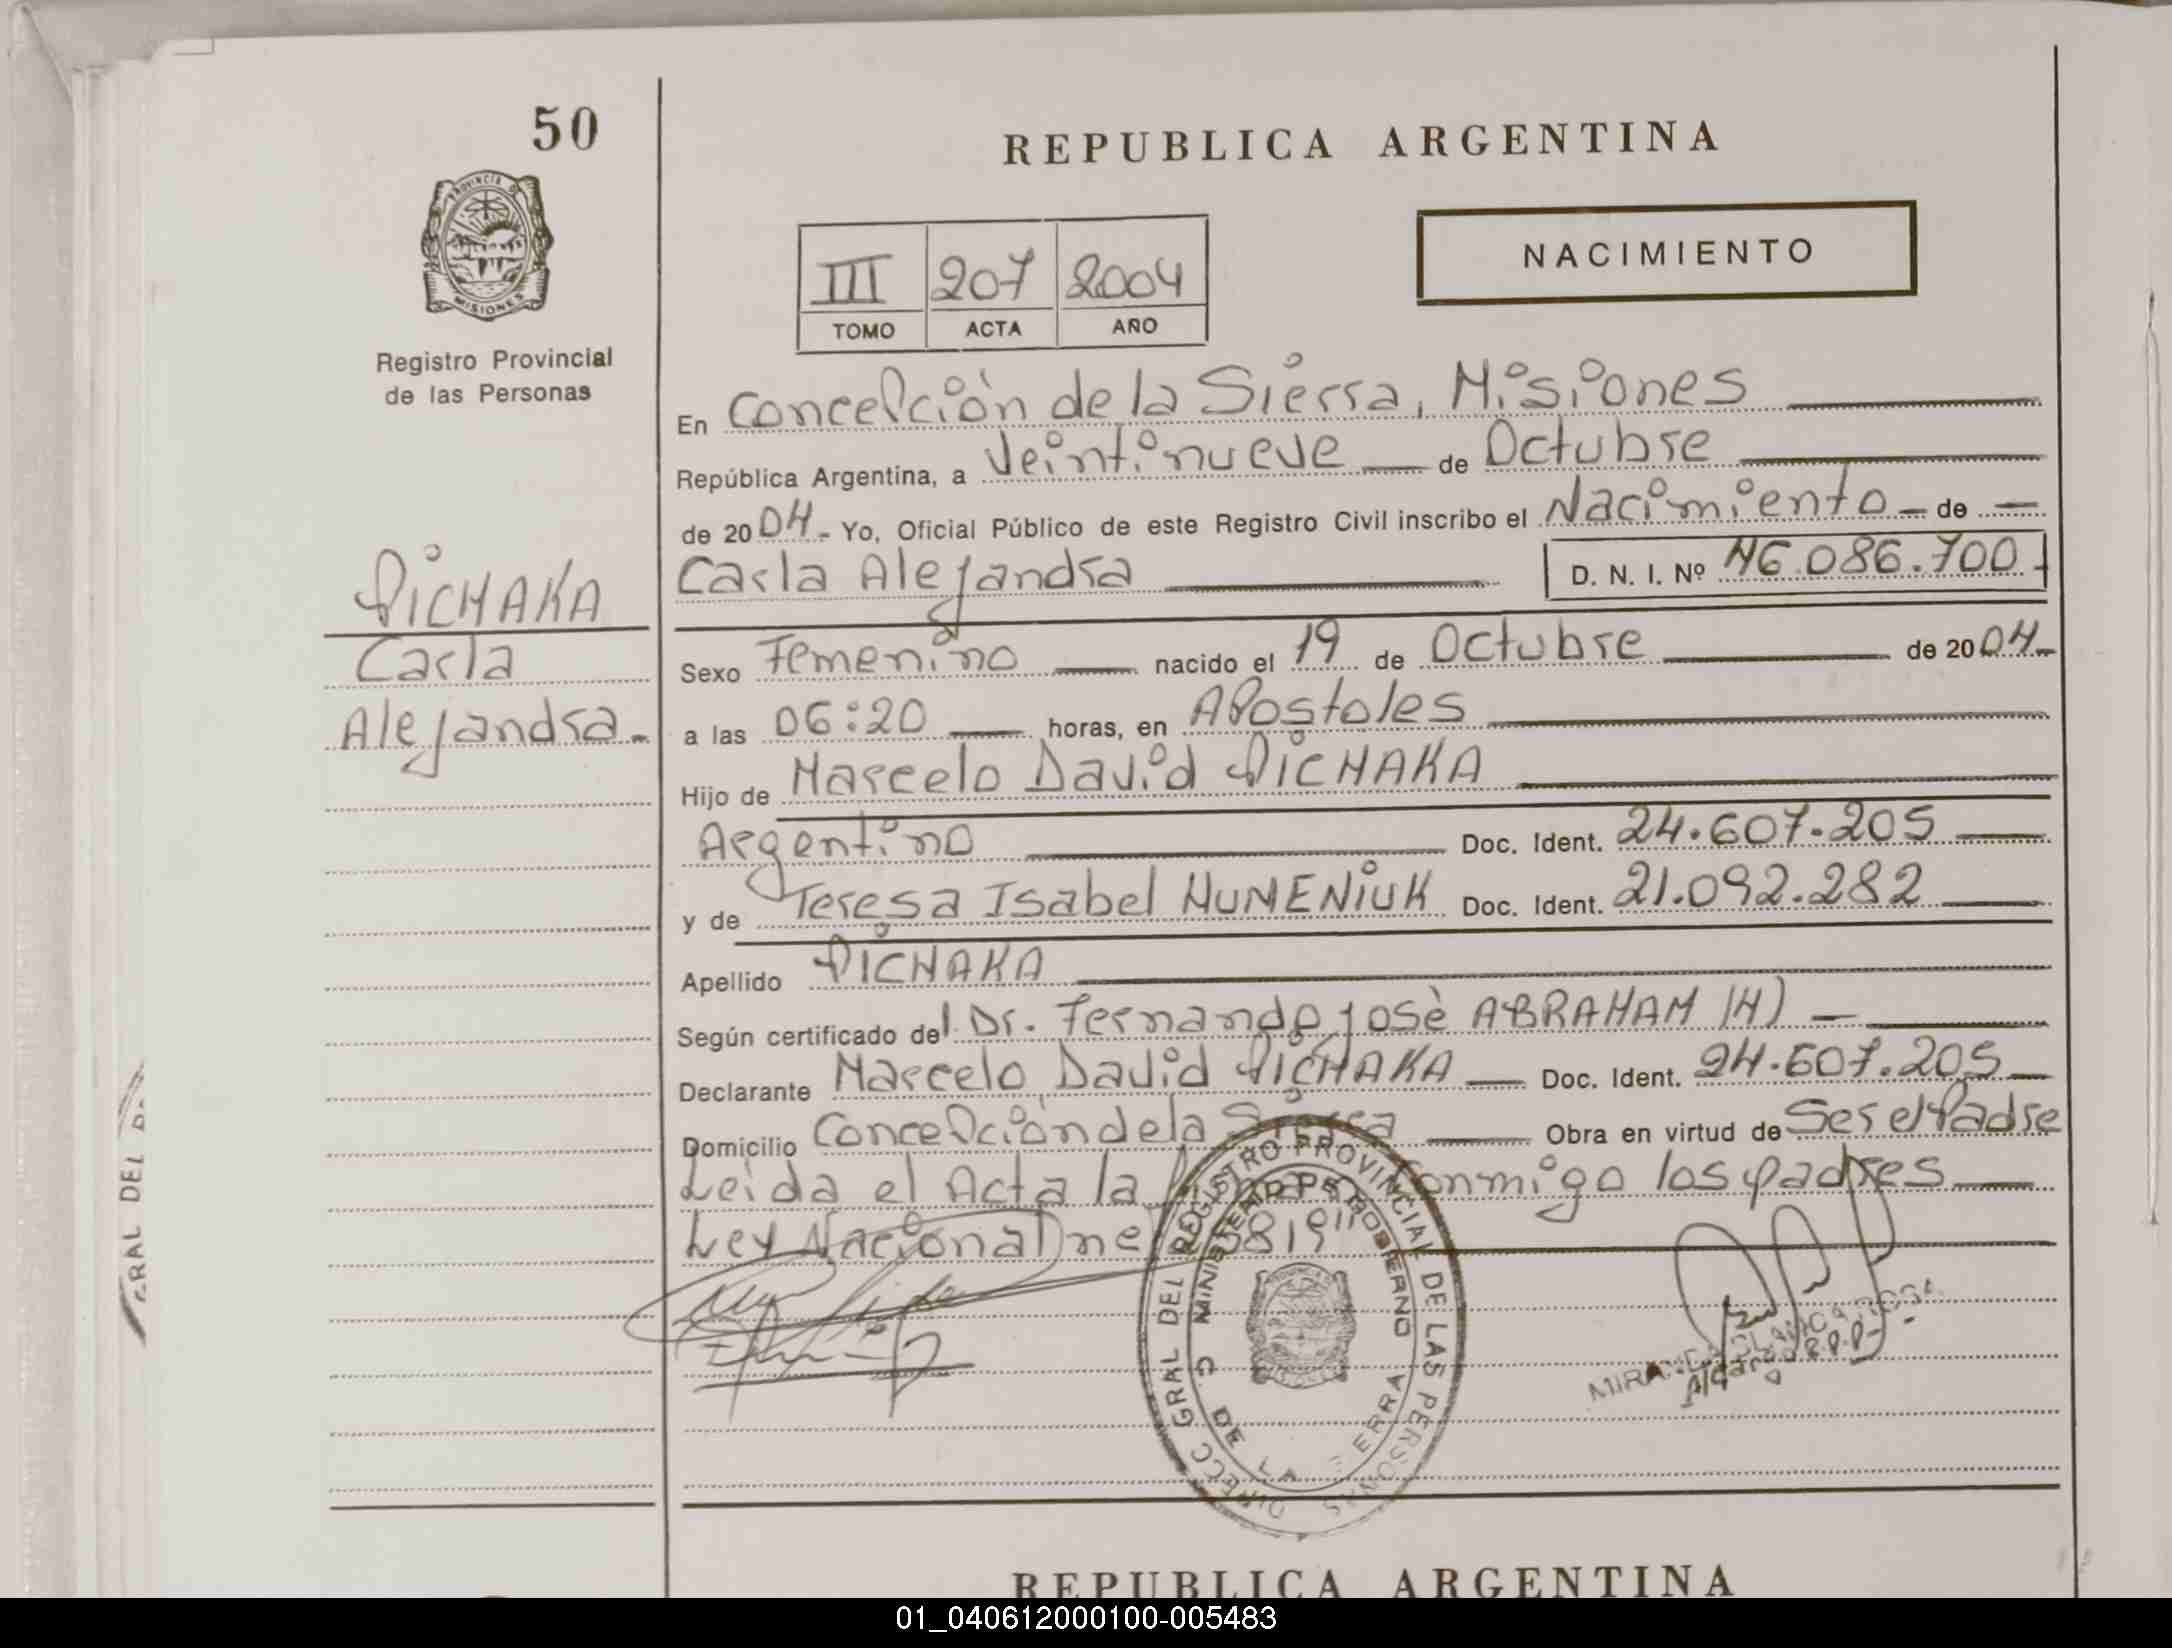 50
REPUBLICA ARGENTINA
PROVINCIA DE
MISIONES
NACIMIENTO
III 207 2004
TOMO ACTA AÑO
Registro Provincial
de las Personas
En Concepción de la Sierra, Misiones
República Argentina, a Veintinueve de Octubre
de 2004.- Yo, Oficial Público de este Registro Civil inscribo el Nacimiento - de -
Carla Alejandra D. N. I. Nº 46.086.700.-
PICHAKA
Carla
Alejandra.-
Sexo Femenino nacido el 19 de Octubre de 2004.-
a las 06:20 horas, en Apostoles
Hijo de Marcelo David PICHAKA
Argentino Doc. Ident. 24.607.205
y de Teresa Isabel HUMENIUK Doc. Ident. 21.092.282
Apellido PICHAKA
Según certificado del Dr. Fernando José ABRAHAM (H) -
Declarante Marcelo David PICHAKA Doc. Ident. 24.607.205
Domicilio Concepción de la Sierra Obra en virtud de Ser el Padre
Leida el Acta la conmigo los padres
Ley Nacional
DIRECC GRAL DEL REGISTRO PROVINCIAL DE LAS PERSONAS
MINISTERIO DE GOBIERNO
C. DE LA SIERRA
GRAL DEL
REPUBLICA ARGENTINA
01_040612000100-005483